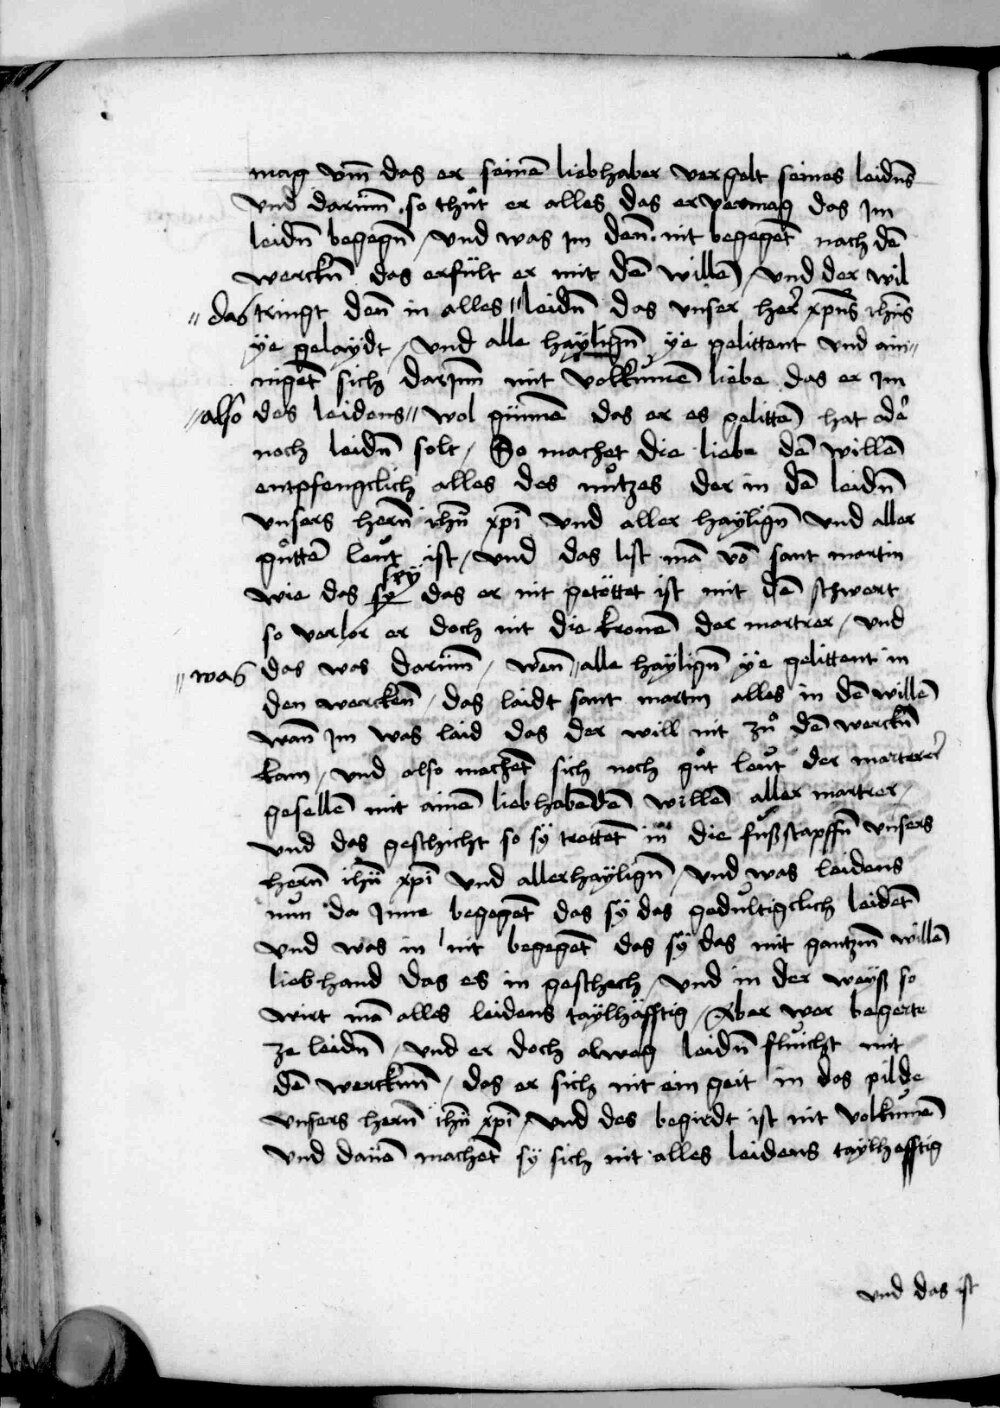 mag vm̄ das er seinē liebhaber vergelt seines leidn̄s
vnd darūm so thůt er alles das er vermag das jm
leidn̄ begegn̄ / vnd was jm den̄ nit begegēt nach dē
werckn̄ das erfült er mit dē willē / vnd der wil
"das tringt den̄ in alles "leidn̄ das vnser her̄ xp̄us ih̄us
ÿe gelaÿdt / vnd alle haÿlign̄ ÿe gelittent vnd ain"
nigēt sich darjn̄n mit volkumē liebe das er jm
"also des leidens" wol günnē das er es gelittē hat odē
noch leidn̄ solt / So machet die liebe dē willē
entpfengclich alles des nůtzes der in dē leidn̄
vnsers hern̄ ih̄u xp̄i vnd aller haÿlign̄ vnd aller
gůttē leut ist / vnd das list mā vō sant martin
wie das sy seÿ das er nit getöttet ist mit dē schwert
so verlor er doch nit die kronē der martrer / vnd
"was das was darūm / wen̄ "alle haÿlign̄ ÿe gelittent in
den werckēn / das laidt sant martin alles in dē willē
wan̄ jm was laid das der will nit zů dē werckn̄
kam / vnd also machēt sich noch gůt leut der marterer
gesellē mit ainē liebhabēdē willē aller martrer /
vnd das geschicht so sÿ trettēt in die fußstapffn̄ vnsers
hern̄ ih̄u xp̄i vnd aller haÿlign̄ / vnd was leidens
nun da jnne begegēt das sÿ das gedultigclich leidēt
vnd was in nit begegēt das sÿ das mit gantzm̄ willē
liebhand das es in geschech / vnd in der weÿß so
wirt mā alles leidens taÿlhäfftig / Aber wer begerte
ze leidn̄ / vnd er doch alweg leidn̄ fluicht mit
dē werckn̄n / das er sich nit ein geit in das pilde
vnsers hern̄ ih̄u xp̄i / vnd des begirdt ist nit volkumē
vnd dauē machēt sÿ sich nit alles leidens taÿlhefftig
vnd das ist